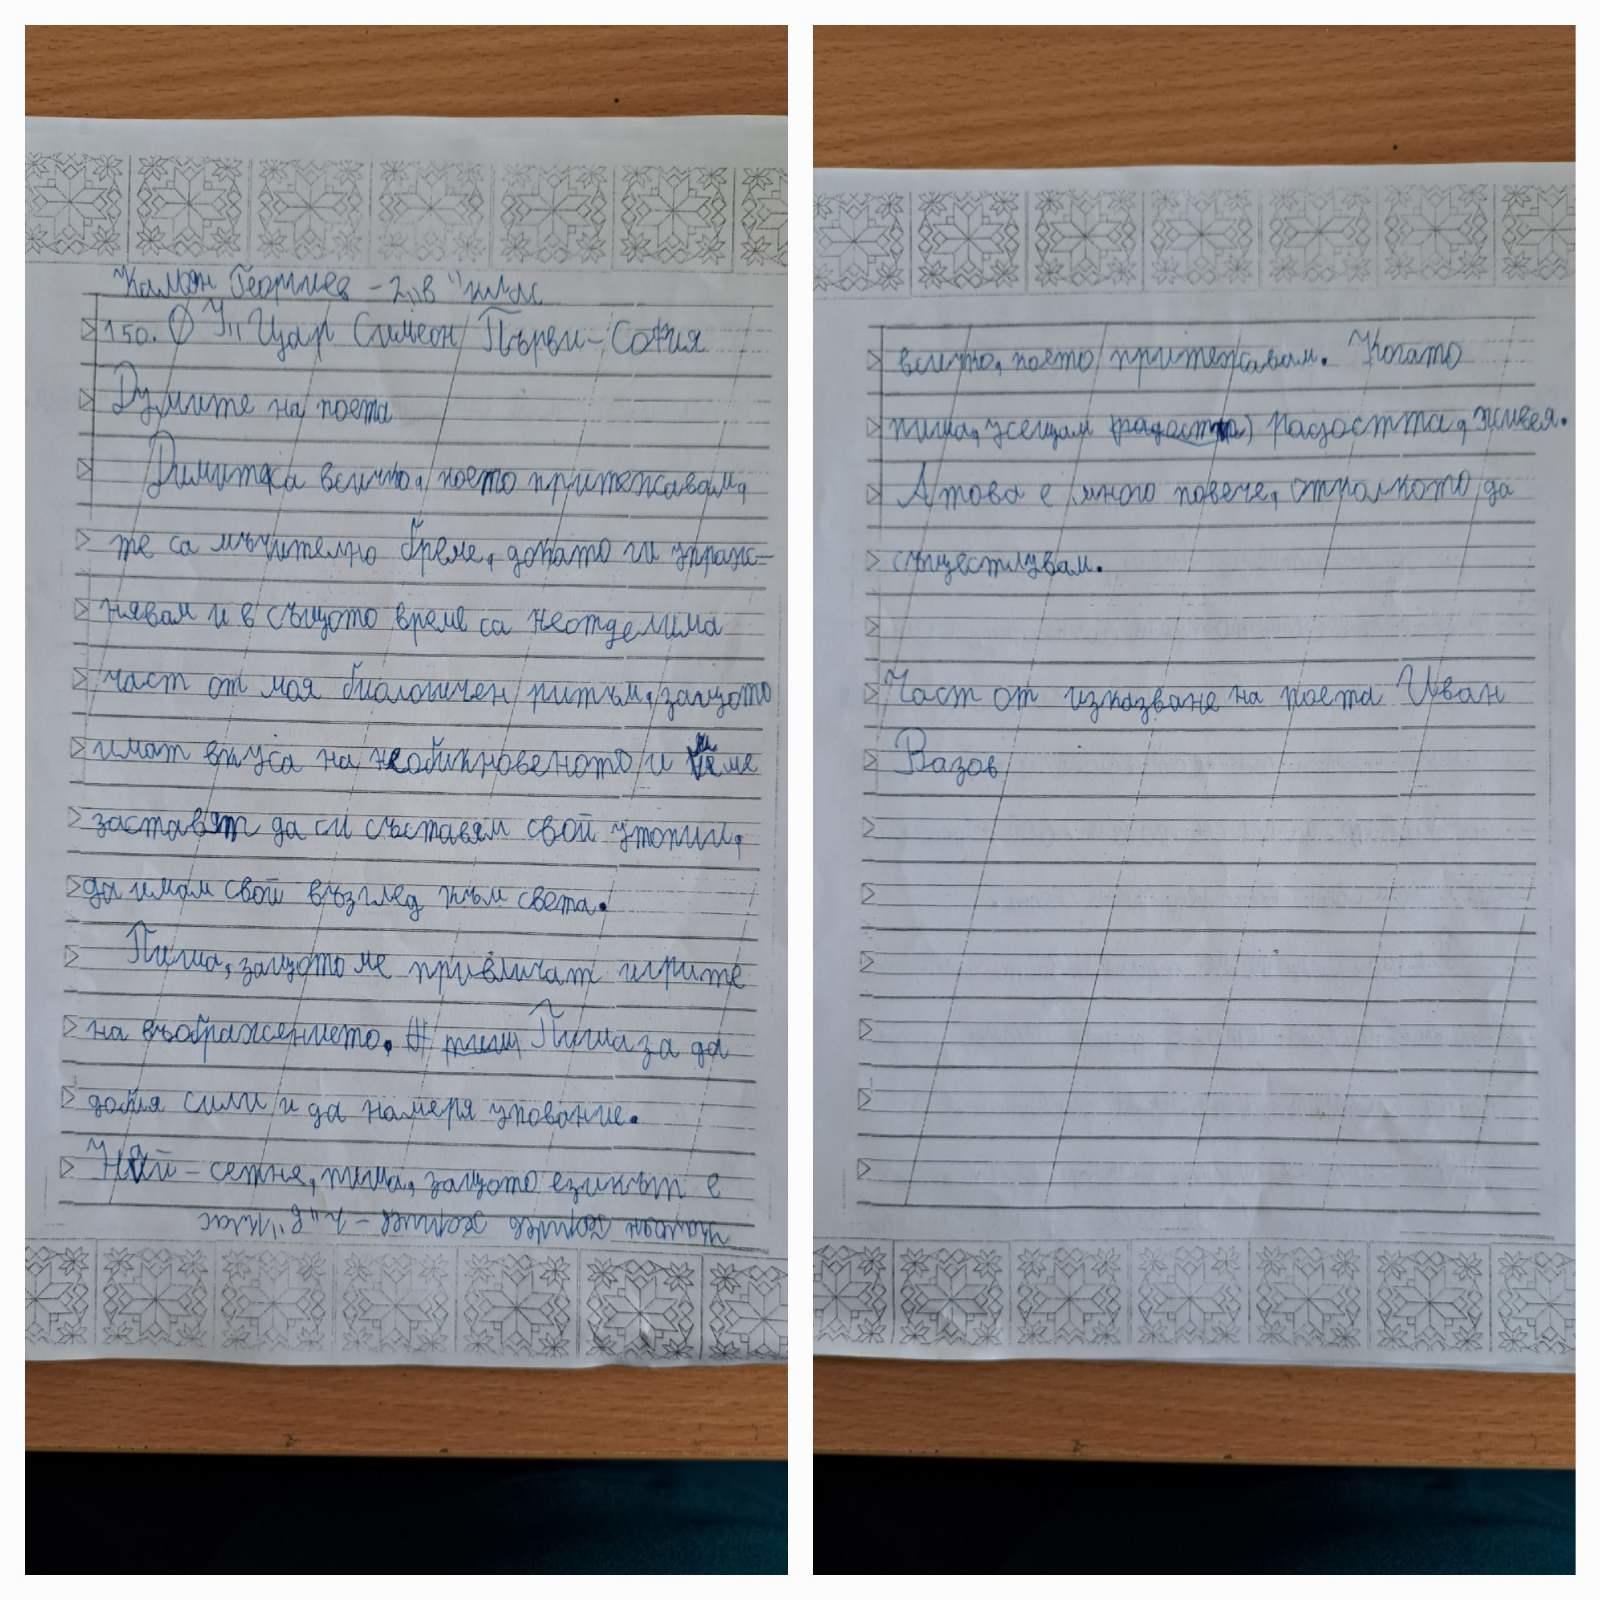 Калоян Георгиев – 2 „в" клас
150. ОУ „Цар Симеон Първи – София
Думите на поета
Думите са всичко, което притежавам,
те са мъчително бреме, докато ги упраж-
нявам и в същото време са неотделима
част от моя биологичен ритъм, защото
имат вкуса на необикновеното и ме
заставят да си съставям свой утопии,
да имам свой възглед към света.
Пиша, защото ме привличат игрите
на въображението. Пиша за да
добия сили и да намеря упование.
Най – сетне, пиша, защото езикът е
Калоян Георгиев – 2 „в" клас
всичко, което притежавам. Когато
пиша, усещам (радостта) радостта, живея.
А това е много повече, отколкото да
съществувам.
Част от изказване на поета Иван
Вазов